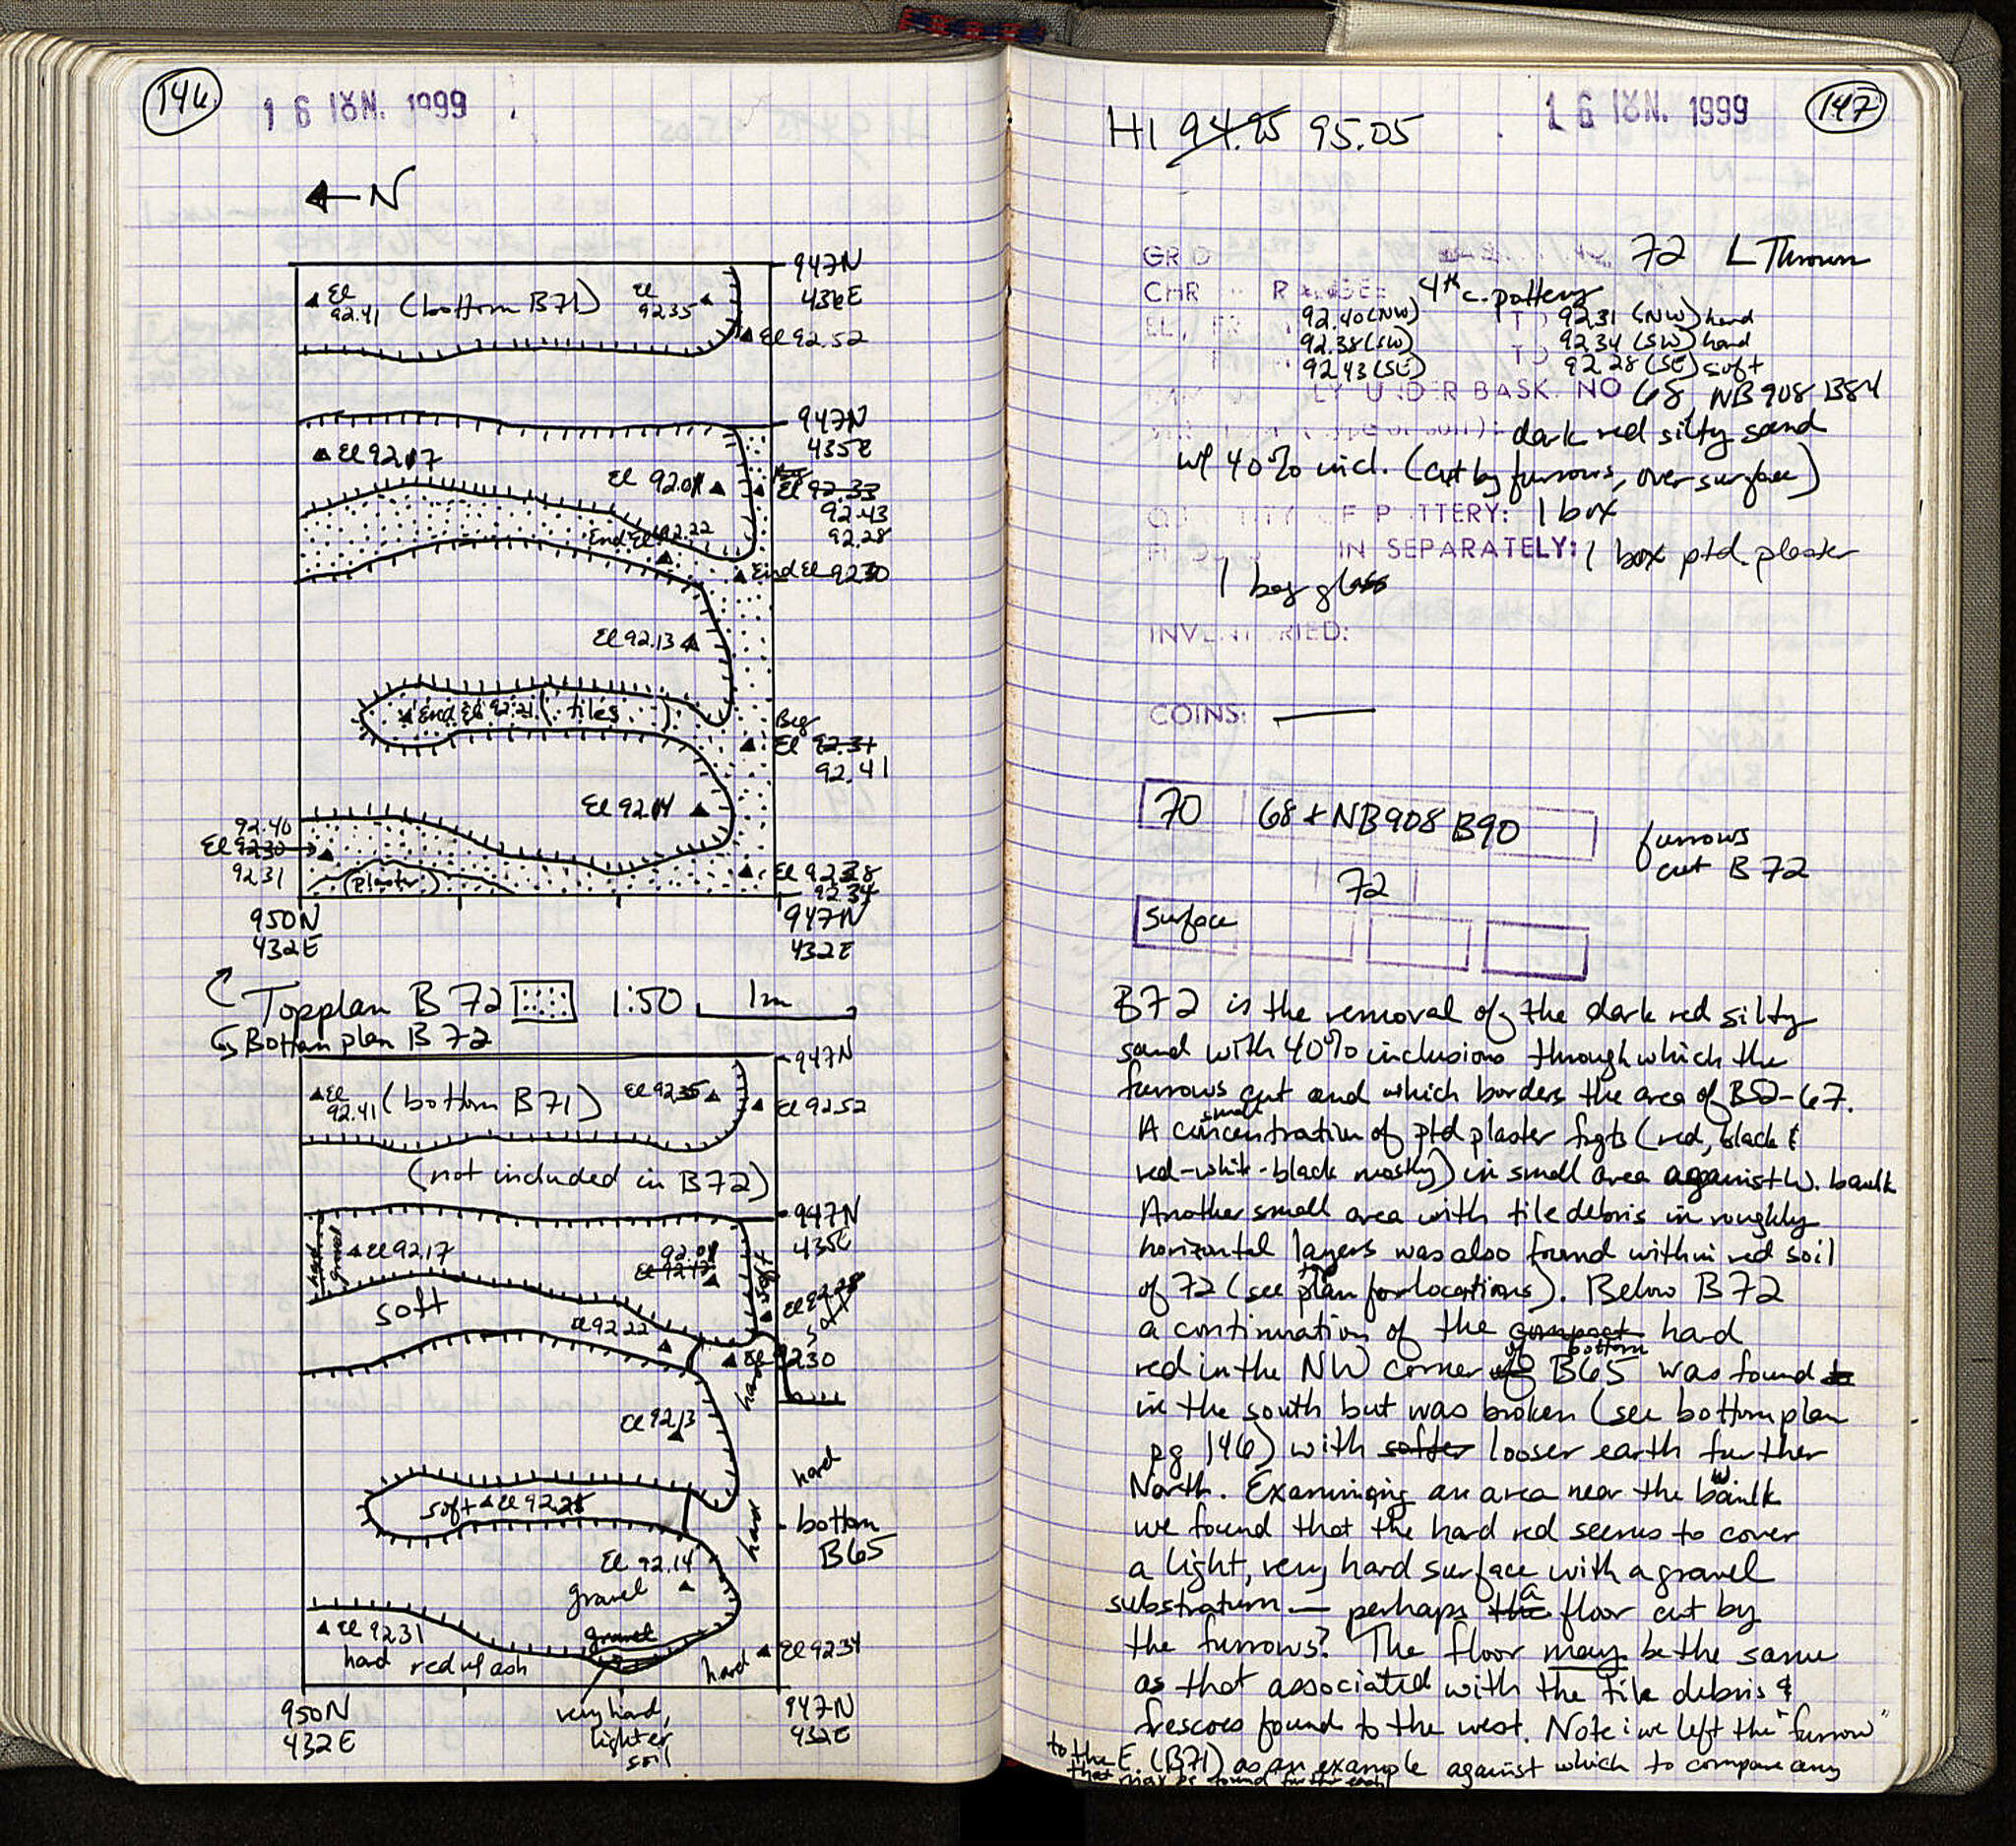 146
16 ΙΟΥΝ. 1999
← N
947N
436E
El 92.41 (bottom B71) El 92.35
El 92.52
947N
435E
El 92.17
El 92.01
El 92.33
92.43
92.28
End El 92.22
End El 92.30
El 92.13
End El 92.21 (tiles)
Beg
El 92.31
92.41
El 92.14
92.40
El 92.30
92.31
(plaster)
El 92.38
92.34
950N
432E
947N
432E
Topplan B 72 1:50 1m
Bottom plan B 72
947N
El 92.41 (bottom B71) El 92.35
El 92.52
(not included in B72)
947N
435E
hard gravel
El 92.17
92.01
El 92.12
soft
El 92.28
soft
soft
El 92.22
El 92.30
hard
El 92.13
hard
soft El 92.21
hard
bottom
B65
El. 92.14
gravel
gravel
El 92.31
hard red w/ ash
hard
El 92.34
950N
432E
very hard,
lighter
soil
947N
432E
HI 94.95 95.05
16 ΙΟΥΝ. 1999
147
GRID 72 L Thrown
CHR RANGE: 4th c. pottery
EL. FR 92.40 (NW) TO 92.31 (NW) hard
92.38 (SW) 92.34 (SW) hard
92.43 (SE) TO 92.28 (SE) soft
LY UNDER BASK. NO 68 NB908 B84
dark red silty sand
w/ 40% incl. (cut by furrows, over surface)
QUANTITY OF POTTERY: 1 box
IN SEPARATELY: 1 box ptd. plaster
1 bag glass
INVENTORIED:
COINS: —
70 68 + NB908 B90
furrows
cut B72
72
surface
B72 is the removal of the dark red silty
sand with 40% inclusions through which the
furrows cut and which borders the area of B52-67.
A small concentration of ptd plaster frgts (red, black &
red-white-black mostly) in small area against W. baulk
Another small area with tile debris in roughly
horizontal layers was also found within red soil
of 72 (see top plan for locations). Below B72
a continuation of the compact hard
red in the NW corner of bottom B65 was found to
in the south but was broken (see bottom plan
pg 146) with softer looser earth further
North. Examining an area near the W. baulk
we found that the hard red seems to cover
a light, very hard surface with a gravel
substratum — perhaps the a floor cut by
the furrows? The floor may be the same
as that associated with the tile debris &
frescoes found to the west. Note: we left the "furrow"
to the E. (B71) as an example against which to compare any
that may be found further east